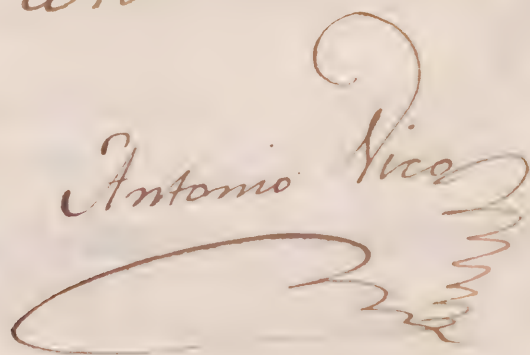 Antonio Vico